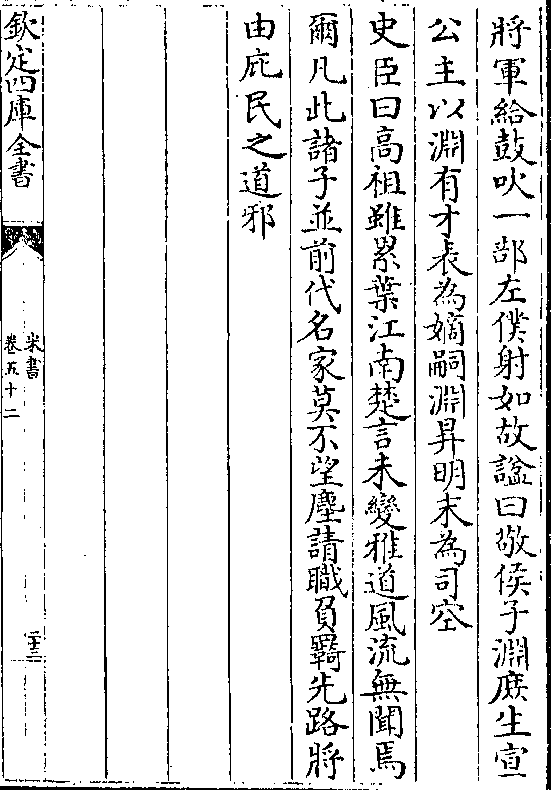 將軍給鼓吹一部左僕射如故諡曰敬侯子淵庶生宣
公主以淵有才表為嫡嗣淵昇明末為司空
史臣曰高祖雖累葉江南楚言未變雅道風流無聞焉
爾凡此諸子並前代名家莫不望塵請職負羈先路將
由庇民之道邪
欽定四庫全書
宋書
卷五十二
二十三